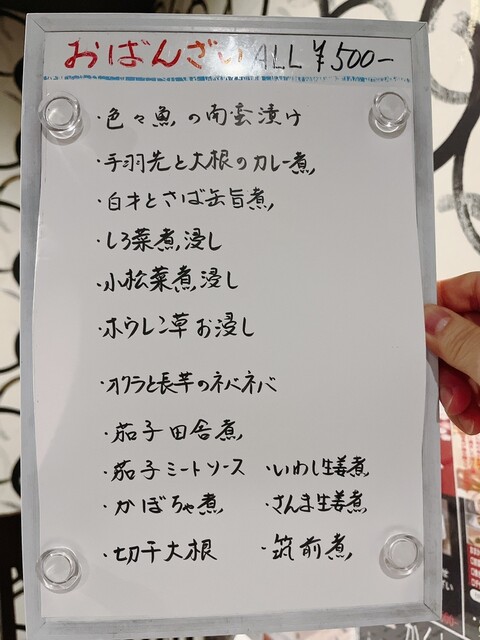 おばんざい ALL ¥500-
・色々魚の南蛮漬け
・手羽先と大根のカレー煮
・白才とさば缶旨煮
・しろ菜煮浸し
・小松菜煮浸し
・ホウレン草お浸し
・オクラと長芋のネバネバ
・茄子田舎煮
・茄子ミートソース ・いわし生姜煮
・かぼちゃ煮 ・さんま生姜煮
・切干大根 ・筑前煮